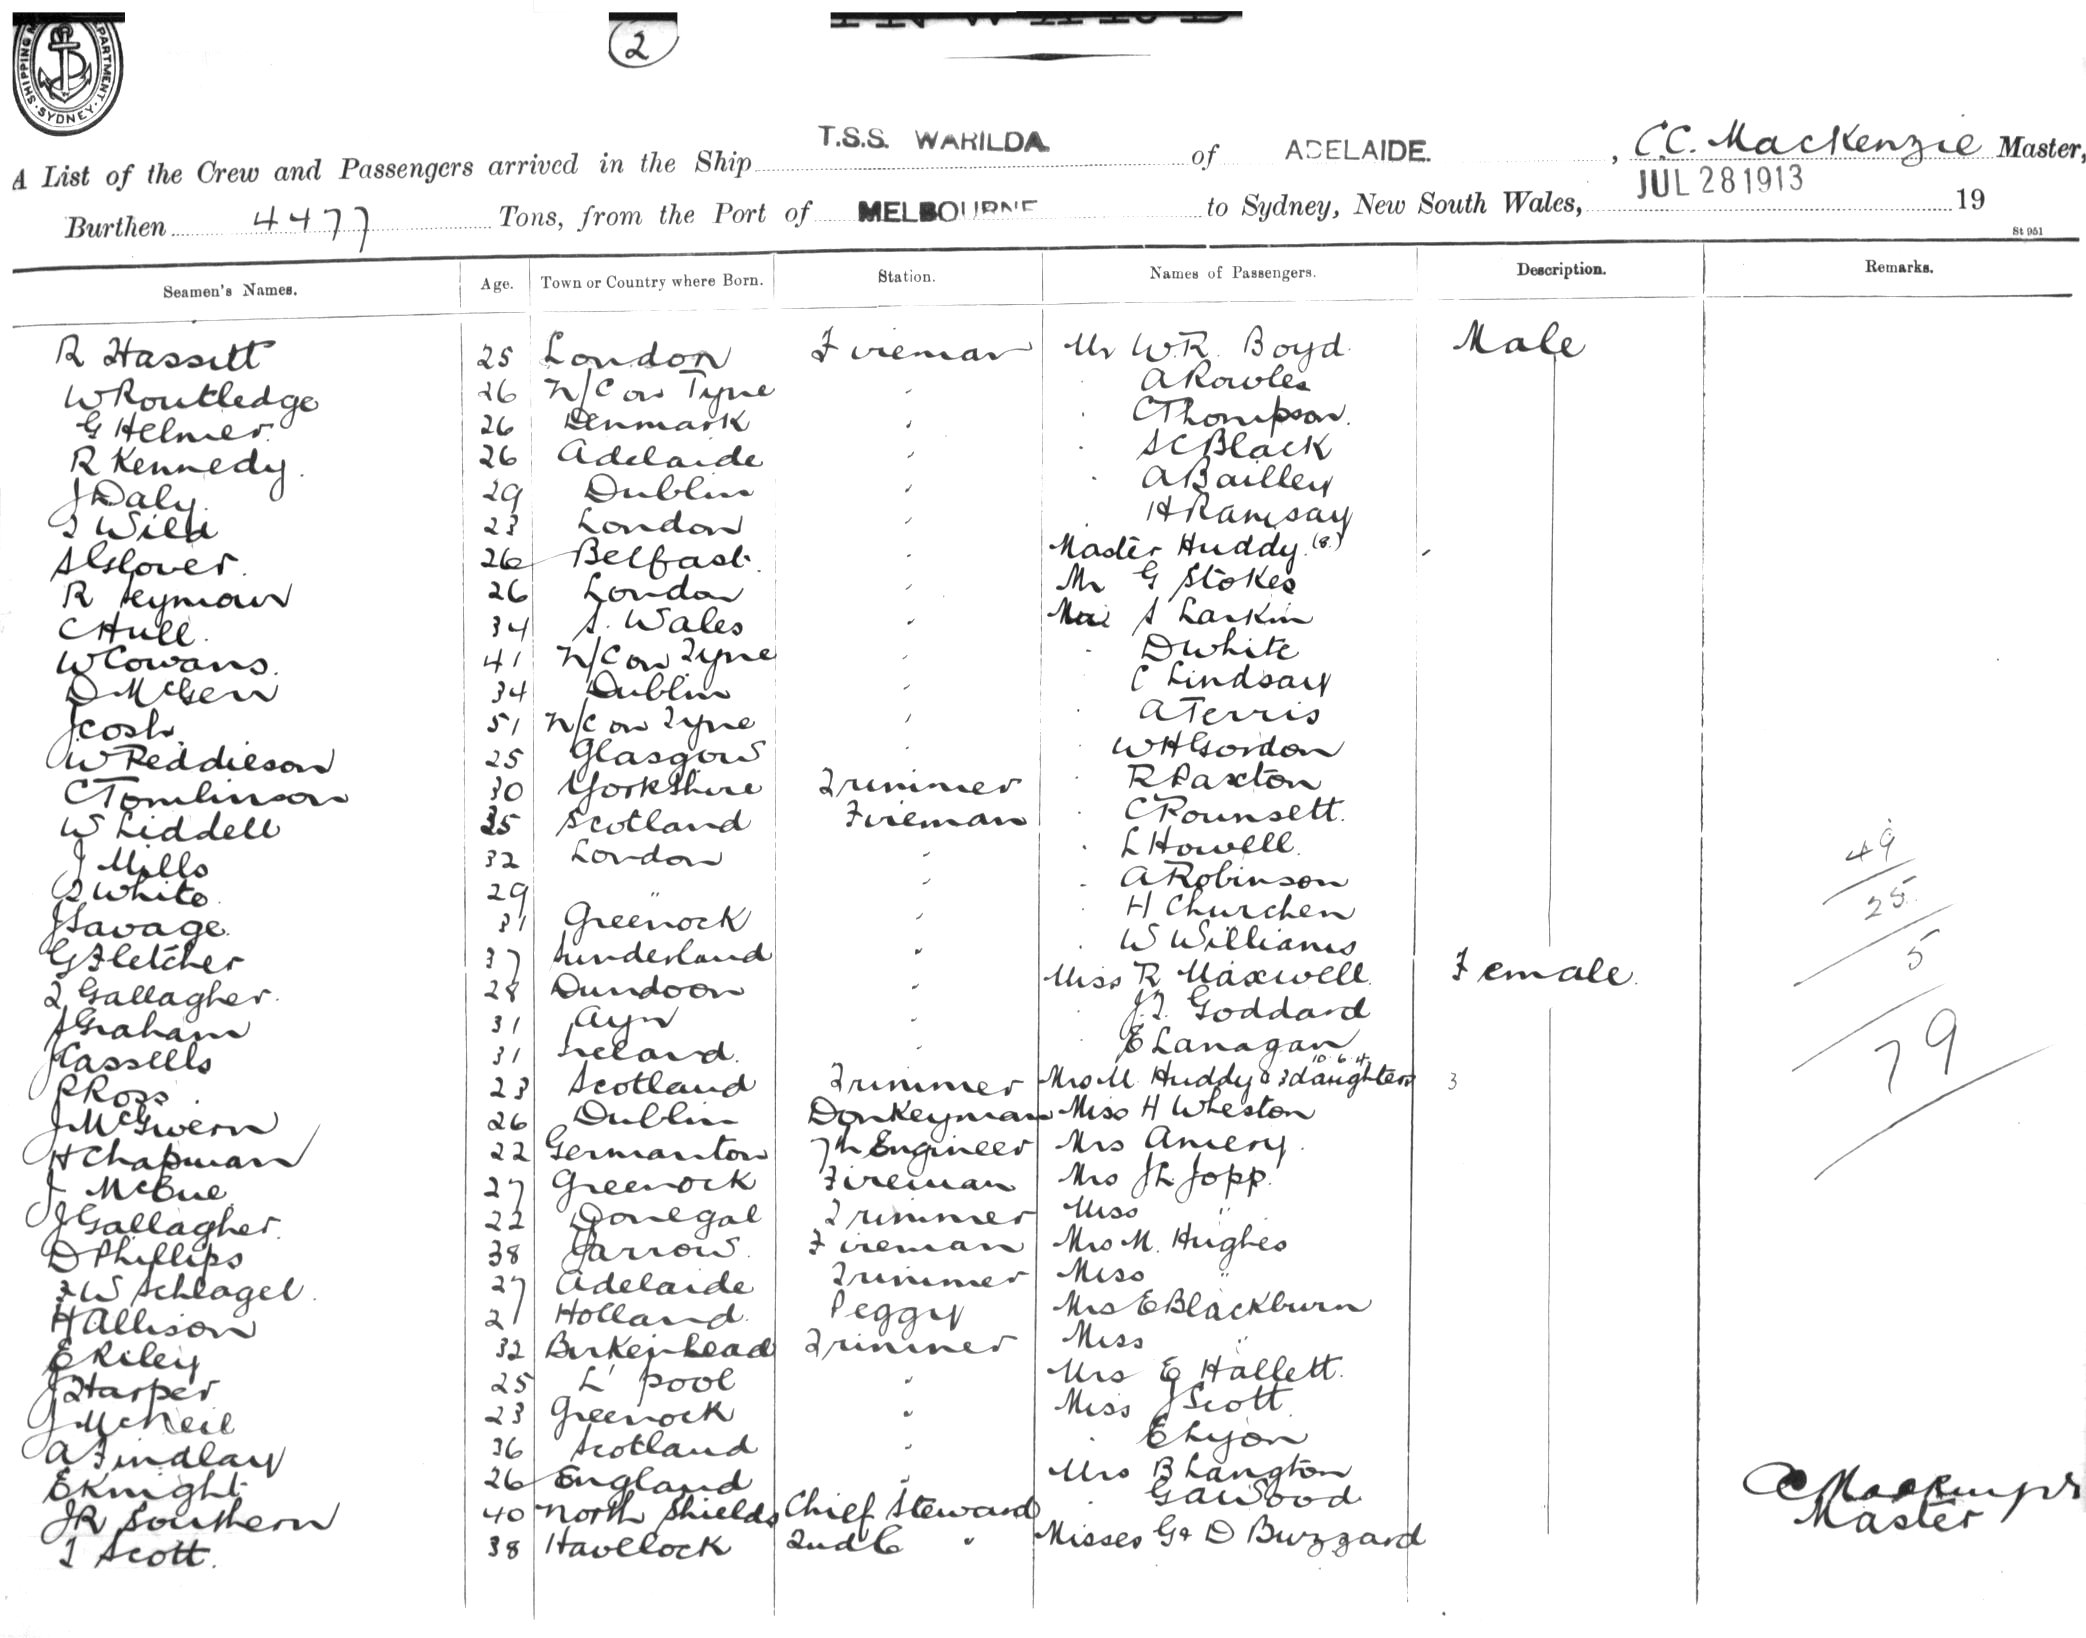 SHIPPING DEPARTMENT SYDNEY
2
INWARD
A List of the Crew and Passengers arrived in the Ship T.S.S. WARILDA of ADELAIDE. , C.C. MacKenzie Master,
Burthen 4477 Tons, from the Port of MELBOURNE to Sydney, New South Wales, JUL 28 1913 19
St 951
Seamen's Names. Age. Town or Country where Born. Station. Names of Passengers. Description. Remarks.
R Hassitt 25 London Fireman Mr W.R. Boyd Male
W Routledge 26 N/C on Tyne " A Rowles
G Helmer 26 Denmark " C Thompson
R Kennedy 26 Adelaide " S C Black
J Daly 29 Dublin " A Bailley
Wild 23 London " H Ramsay
A Glover 26 Belfast " Master Huddy (8)
R Seymour 26 London " Mr G Stokes
C Hull 34 S. Wales " S Larkin
W Cowans 41 N/C on Tyne " D White
D McGen 34 Dublin " C Lindsay
J Cosh 51 N/C on Tyne " A Terris
W Reddieson 25 Glasgow " W H Gordon
C Tomlinson 30 Yorkshire Trimmer R Paxton
W Liddell 35 Scotland Fireman C Rounsett
J Mills 32 London " L Howell
White 29 " " A Robinson
J Savage 31 Greenock " H Churchen
G Fletcher 37 Sunderland " W Williams
T Gallagher 28 Dundoon " Miss R Maxwell Female
J Graham 31 Ayr " J.T. Goddard
J Cassells 31 Ireland " E Lanagan
R Ross 23 Scotland Trimmer Mrs M Huddy & 3 daughters 10 6 4 3
J McGivern 26 Dublin Donkeyman Miss H Wheston
H Chapman 22 Germanton 7th Engineer Mrs Amery
J McCue 27 Greenock Fireman Mrs J L Jopp
J Gallagher 22 Donegal Trimmer Miss "
D Phillips 38 Jarrow Fireman Mrs M. Hughes
F W Schlagel 27 Adelaide Trimmer Miss "
H Allison 21 Holland Peggy Mrs E Blackburn
E Riley 32 Birkenhead Trimmer Miss "
J Harper 25 L'pool " Mrs E Hallett
J McNeil 23 Greenock " Miss J Scott
A Findlay 36 Scotland " E Lyon
E Knight 26 England " Mrs B Langton
J R Southern 40 North Shields Chief Steward G A Wood
T Scott 38 Havelock 2nd C " Misses G & D Buzzard
49
25
5
79
C C MacKenzie
Master